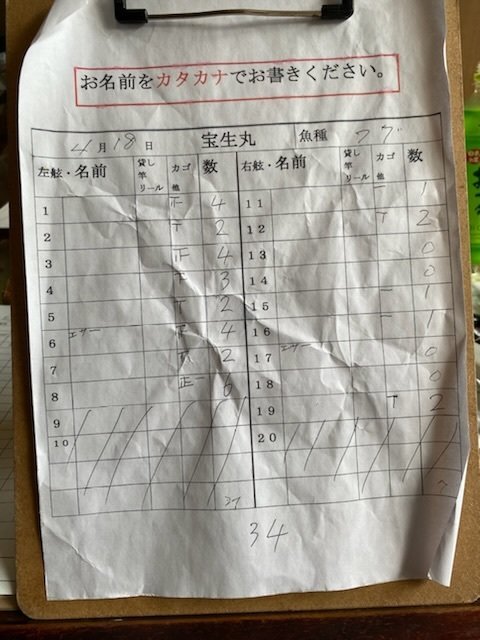 お名前をカタカナでお書きください。
4月18日 宝生丸 魚種 フグ
左舷・名前 貸し竿リール カゴ他 数 右舷・名前 貸し竿リール カゴ他 数
1 正 4 11 一 1
2 T 2 12 T 2
3 正 4 13 0
4 3 14 0
5 T 2 15 一 1
6 エサー 4 16 一 1
7 2 17 エサー 0
8 正一 6 18 0
9 19 T 2
10 20
27 7
34